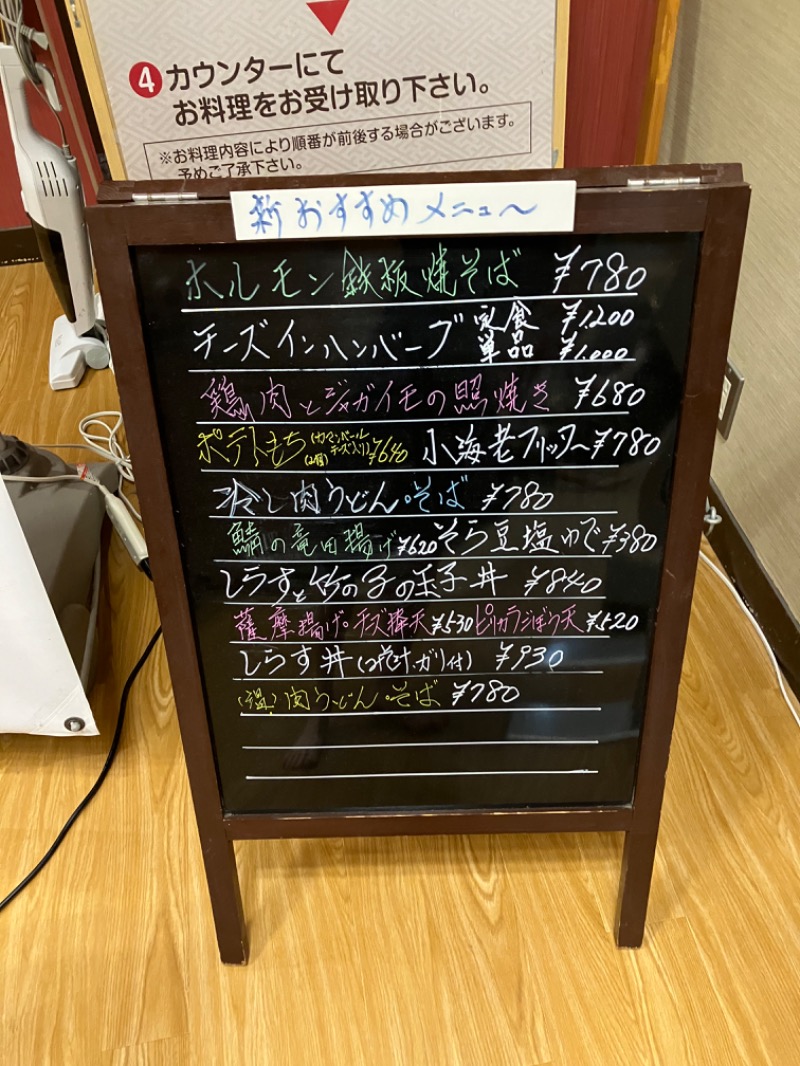 ④ カウンターにて
お料理をお受け取り下さい。
※お料理内容により順番が前後する場合がございます。
予めご了承下さい。
新おすすめメニュー
ホルモン鉄板焼そば ¥780
チーズインハンバーグ 定食 ¥1,200
単品 ¥1,000
鶏肉とジャガイモの照焼き ¥680
ポテトもち(カマンベールチーズ入り)(2個) ¥640 小海老フリッター ¥780
冷し肉うどん・そば ¥780
鯖の竜田揚げ ¥620 そら豆塩ゆで ¥380
しらすと竹の子の玉子丼 ¥840
薩摩揚げ・チーズ棒天 ¥530 ピリカラごぼう天 ¥520
しらす丼(みそ汁、ガリ付) ¥930
(温)肉うどん・そば ¥780